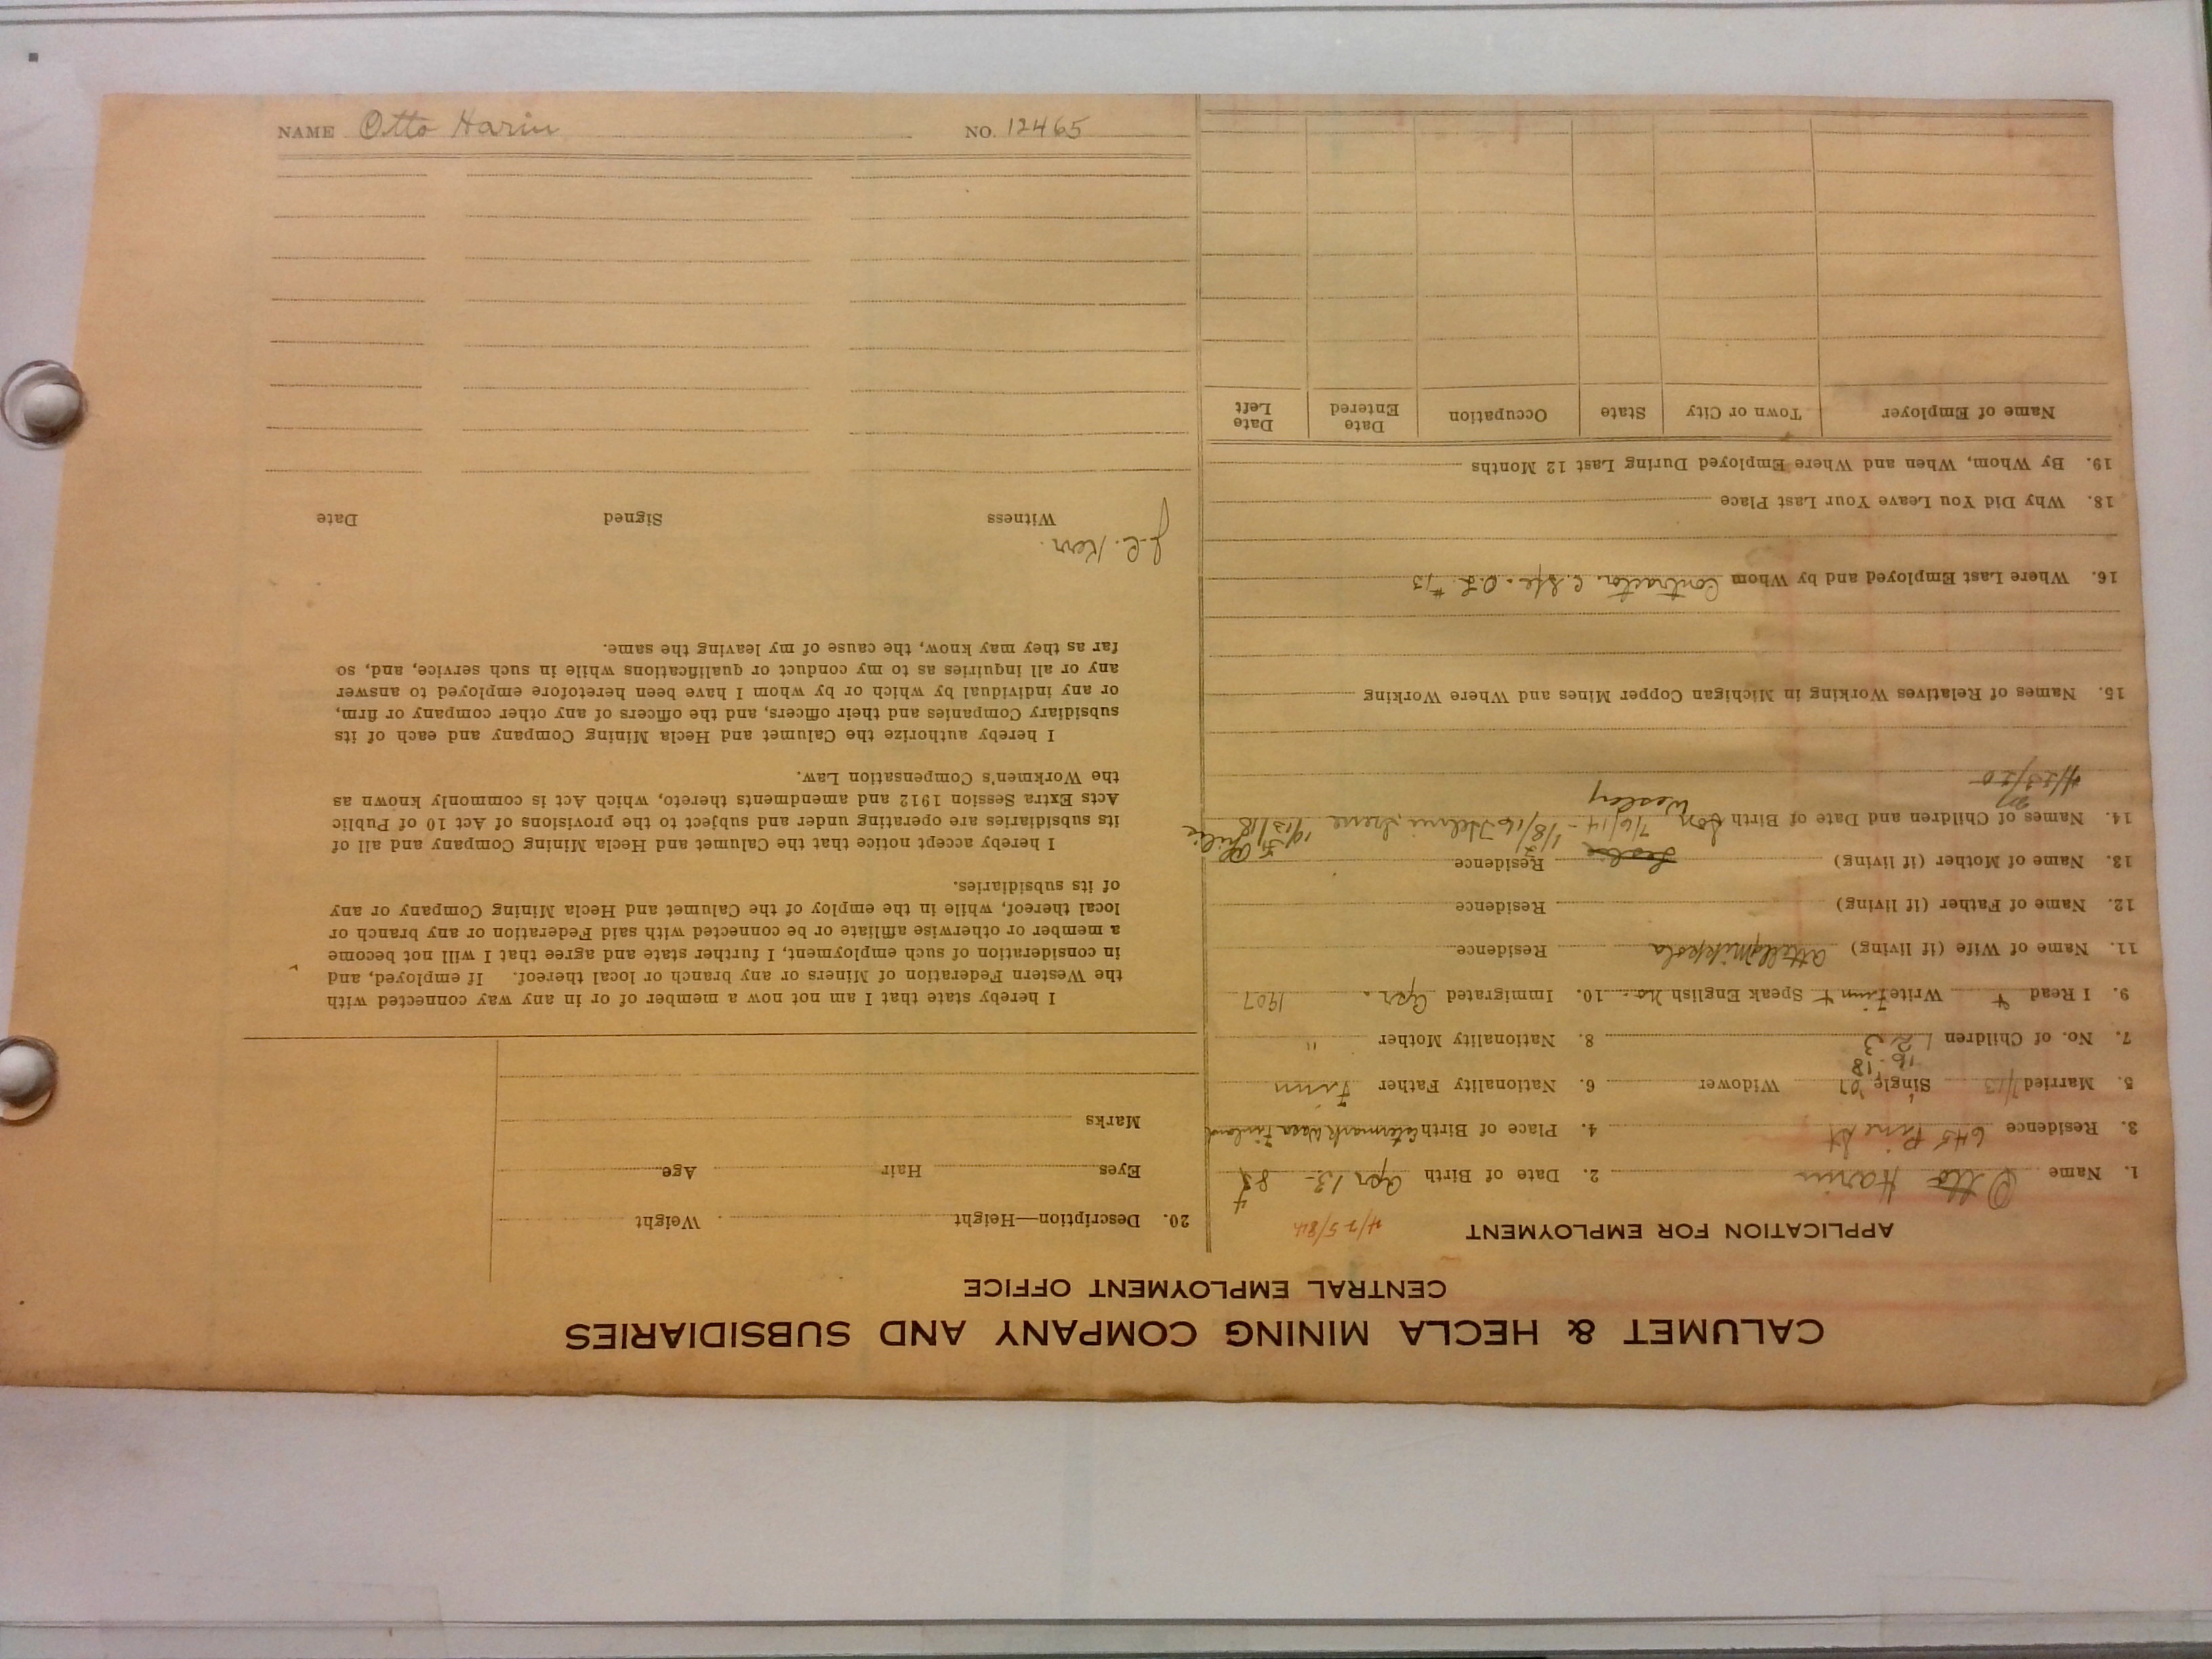 CALUMET & HECLA MINING COMPANY AND SUBSIDIARIES
CENTRAL EMPLOYMENT OFFICE
APPLICATION FOR EMPLOYMENT 4/25/84
1. Name Otto Harin 2. Date of Birth Apr 13-
3. Residence 645 Pine St 4. Place of Birth Wasa Finland
5. Married 7/13 Single Widower 6. Nationality Father Finn
7. No. of Children 1 2 3 8. Nationality Mother "
9. I Read Write Finn Speak English no 10. Immigrated Apr. 1907
11. Name of Wife (if living) Residence
12. Name of Father (if living) Residence
13. Name of Mother (if living) Residence
14. Names of Children and Date of Birth Son 7/6/14 - 1/8/16 Helmi Irene
Wesley
4/23/20
15. Names of Relatives Working in Michigan Copper Mines and Where Working
16. Where Last Employed and by Whom Contractor #13
18. Why Did You Leave Your Last Place
19. By Whom, When and Where Employed During Last 12 Months
Name of Employer Town or City State Occupation Date Entered Date Left
20. Description—Height Weight
Eyes Hair Age
Marks
I hereby state that I am not now a member of or in any way connected with
the Western Federation of Miners or any branch or local thereof. If employed, and
in consideration of such employment, I further state and agree that I will not become
a member or otherwise affiliate or be connected with said Federation or any branch or
local thereof, while in the employ of the Calumet and Hecla Mining Company or any
of its subsidiaries.
I hereby accept notice that the Calumet and Hecla Mining Company and all of
its subsidiaries are operating under and subject to the provisions of Act 10 of Public
Acts Extra Session 1912 and amendments thereto, which Act is commonly known as
the Workmen's Compensation Law.
I hereby authorize the Calumet and Hecla Mining Company and each of its
subsidiary Companies and their officers, and the officers of any other company or firm,
or any individual by which or by whom I have been heretofore employed to answer
any or all inquiries as to my conduct or qualifications while in such service, and, so
far as they may know, the cause of my leaving the same.
J.C. Kerr.
Witness Signed Date
NAME Otto Harin NO. 12465